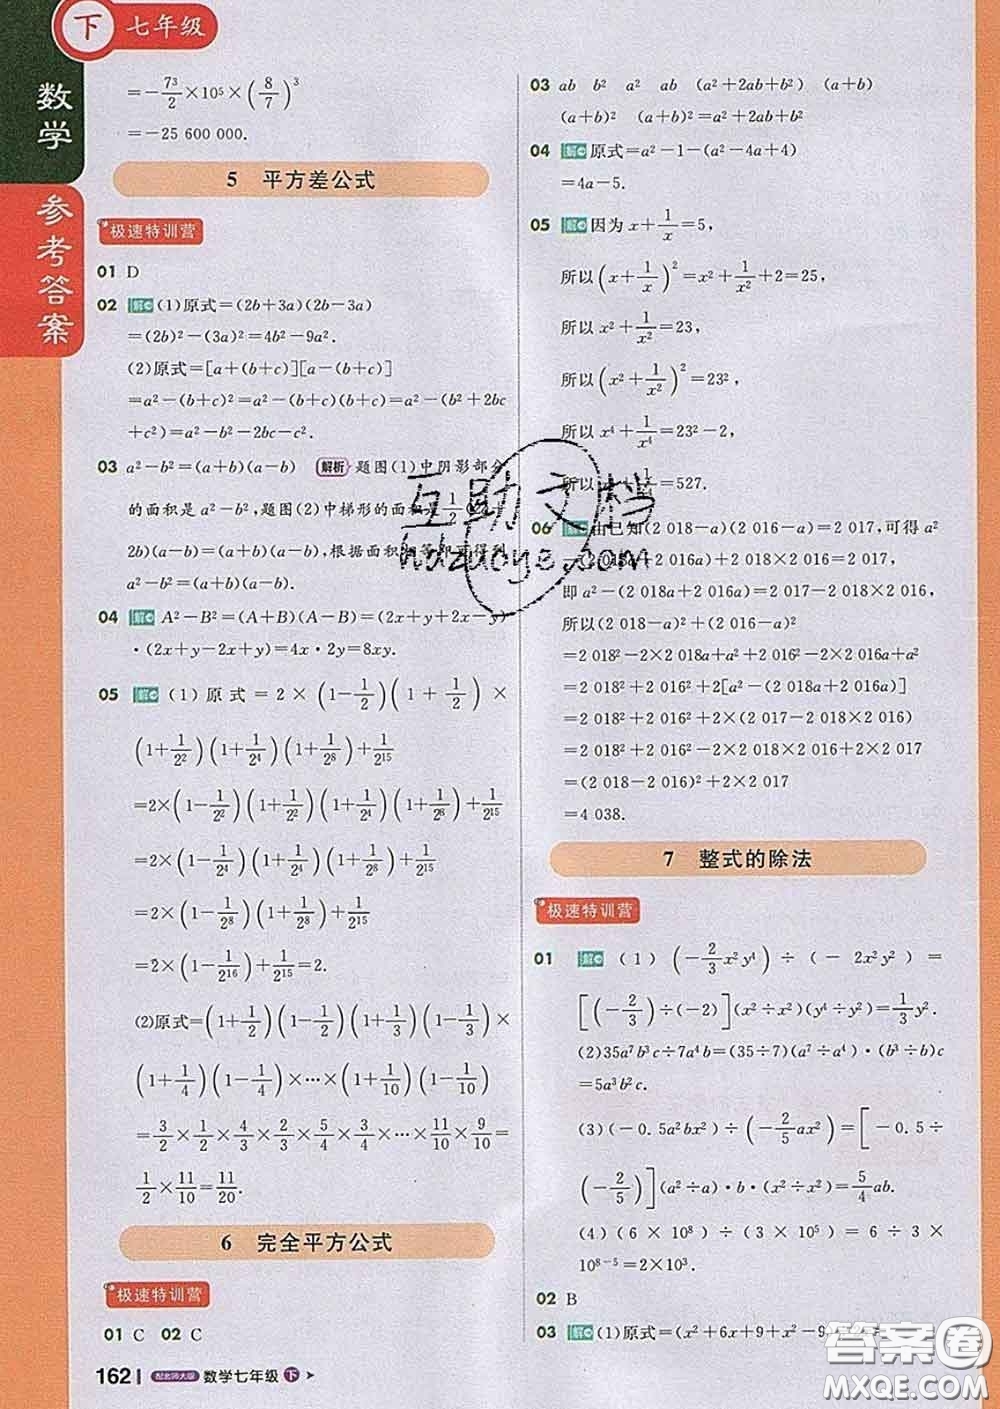 下 七年级
数学
参考答案
=-7³/2×10⁵×(8/7)³
=-25 600 000.
5 平方差公式
极速特训营
01 D
02 解 (1)原式=(2b+3a)(2b-3a)
=(2b)²-(3a)²=4b²-9a².
(2)原式=[a+(b+c)][a-(b+c)]
=a²-(b+c)²=a²-(b+c)(b+c)=a²-(b²+2bc
+c²)=a²-b²-2bc-c².
03 a²-b²=(a+b)(a-b) 解析 题图(1)中阴影部分
的面积是a²-b²,题图(2)中梯形的面积是1/2
2b)(a-b)=(a+b)(a-b),根据面积相等即可得到
a²-b²=(a+b)(a-b).
04 解 A²-B²=(A+B)(A-B)=(2x+y+2x-y)
·(2x+y-2x+y)=4x·2y=8xy.
05 解 (1)原式=2×(1-1/2)(1+1/2)×
(1+1/2²)(1+1/2⁴)(1+1/2⁸)+1/2¹⁵
=2×(1-1/2²)(1+1/2²)(1+1/2⁴)(1+1/2⁸)+1/2¹⁵
=2×(1-1/2⁴)(1+1/2⁴)(1+1/2⁸)+1/2¹⁵
=2×(1-1/2⁸)(1+1/2⁸)+1/2¹⁵
=2×(1-1/2¹⁶)+1/2¹⁵=2.
(2)原式=(1+1/2)(1-1/2)(1+1/3)(1-1/3)×
(1+1/4)(1-1/4)×⋯×(1+1/10)(1-1/10)
=3/2×1/2×4/3×2/3×5/4×3/4×⋯×11/10×9/10=
1/2×11/10=11/20.
6 完全平方公式
极速特训营
01 C 02 C
162 配北师大版 数学七年级 下
03 ab b² a² ab (a²+2ab+b²) (a+b)
(a+b)² (a+b)²=a²+2ab+b²
04 解 原式=a²-1-(a²-4a+4)
=4a-5.
05 解 因为x+1/x=5,
所以(x+1/x)²=x²+1/x²+2=25,
所以x²+1/x²=23,
所以(x²+1/x²)²=23²,
所以x⁴+1/x⁴=23²-2,
所以x⁴+1/x⁴=527.
06 解 由已知(2 018-a)(2 016-a)=2 017,可得a²
-(2 018a+2 016a)+2 018×2 016=2 017,
即a²-(2 018a+2 016a)=2 017-2 018×2 016,
所以(2 018-a)²+(2 016-a)²
=2 018²-2×2 018a+a²+2 016²-2×2 016a+a²
=2 018²+2 016²+2[a²-(2 018a+2 016a)]
=2 018²+2 016²+2×(2 017-2 018×2 016)
=2 018²+2 016²-2×2 018×2 016+2×2 017
=(2 018-2 016)²+2×2 017
=4 038.
7 整式的除法
极速特训营
01 解 (1)(-2/3x²y⁴)÷(-2x²y²)=
[(-2/3)÷(-2)](x²÷x²)(y⁴÷y²)=1/3y².
(2)35a⁷b³c÷7a⁴b=(35÷7)(a⁷÷a⁴)·(b³÷b)c
=5a³b²c.
(3)(-0.5a²bx²)÷(-2/5ax²)=[-0.5÷
(-2/5)](a²÷a)·b·(x²÷x²)=5/4ab.
(4)(6×10⁸)÷(3×10⁵)=6÷3×
10⁸⁻⁵=2×10³.
02 B
03 解 (1)原式=(x²+6x+9+x²-9
互助文档
hdzuoye.com
答案圈
MXQE.COM